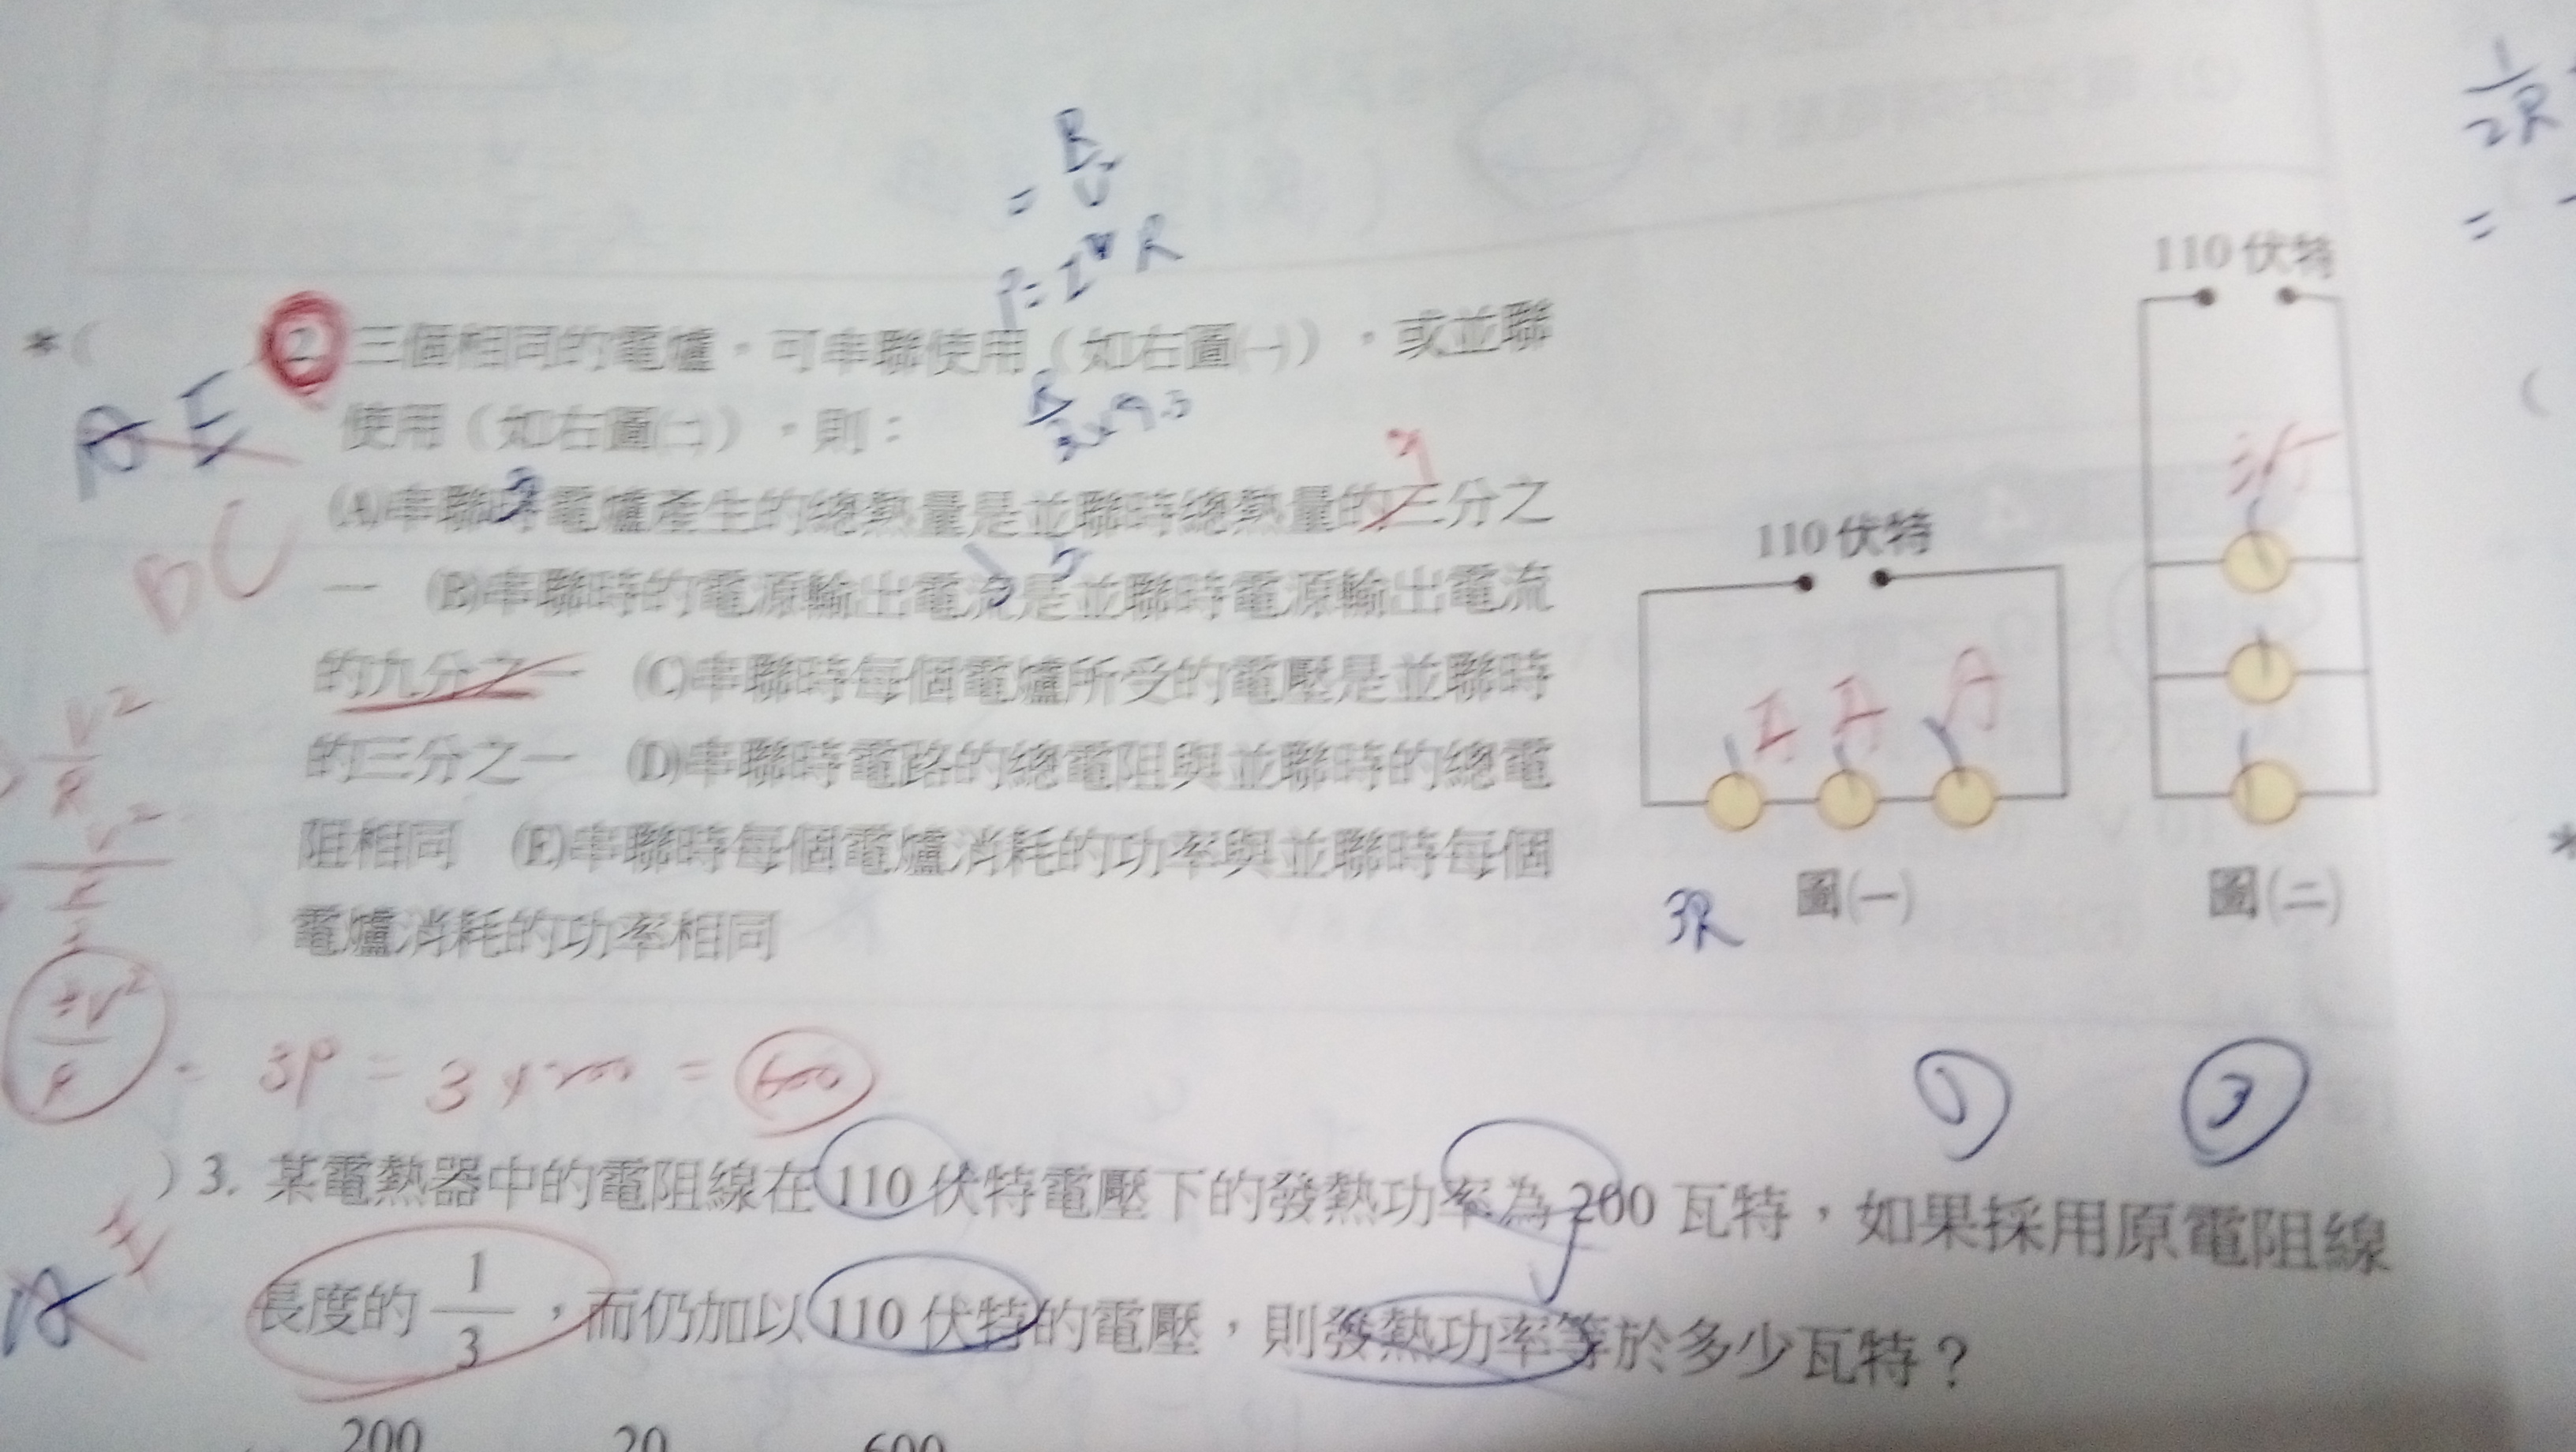 = R/V
P = I² R
110 伏特
2. 三個相同的電爐，可串聯使用（如右圖(一)），或並聯
使用（如右圖(二)），則：
AE
BC
(A)串聯時電爐產生的總熱量是並聯時總熱量的三分之
一 (B)串聯時的電源輸出電流是並聯時電源輸出電流
的九分之一 (C)串聯時每個電爐所受的電壓是並聯時
的三分之一 (D)串聯時電路的總電阻與並聯時的總電
阻相同 (E)串聯時每個電爐消耗的功率與並聯時每個
電爐消耗的功率相同
110 伏特
3R
圖(一)
圖(二)
V²/R
3V²/R = 3P = 3 × 200 = 600
) 3. 某電熱器中的電阻線在 110 伏特電壓下的發熱功率為 200 瓦特，如果採用原電阻線
長度的 1/3，而仍加以 110 伏特的電壓，則發熱功率等於多少瓦特？
200 20 600
1/2R
=